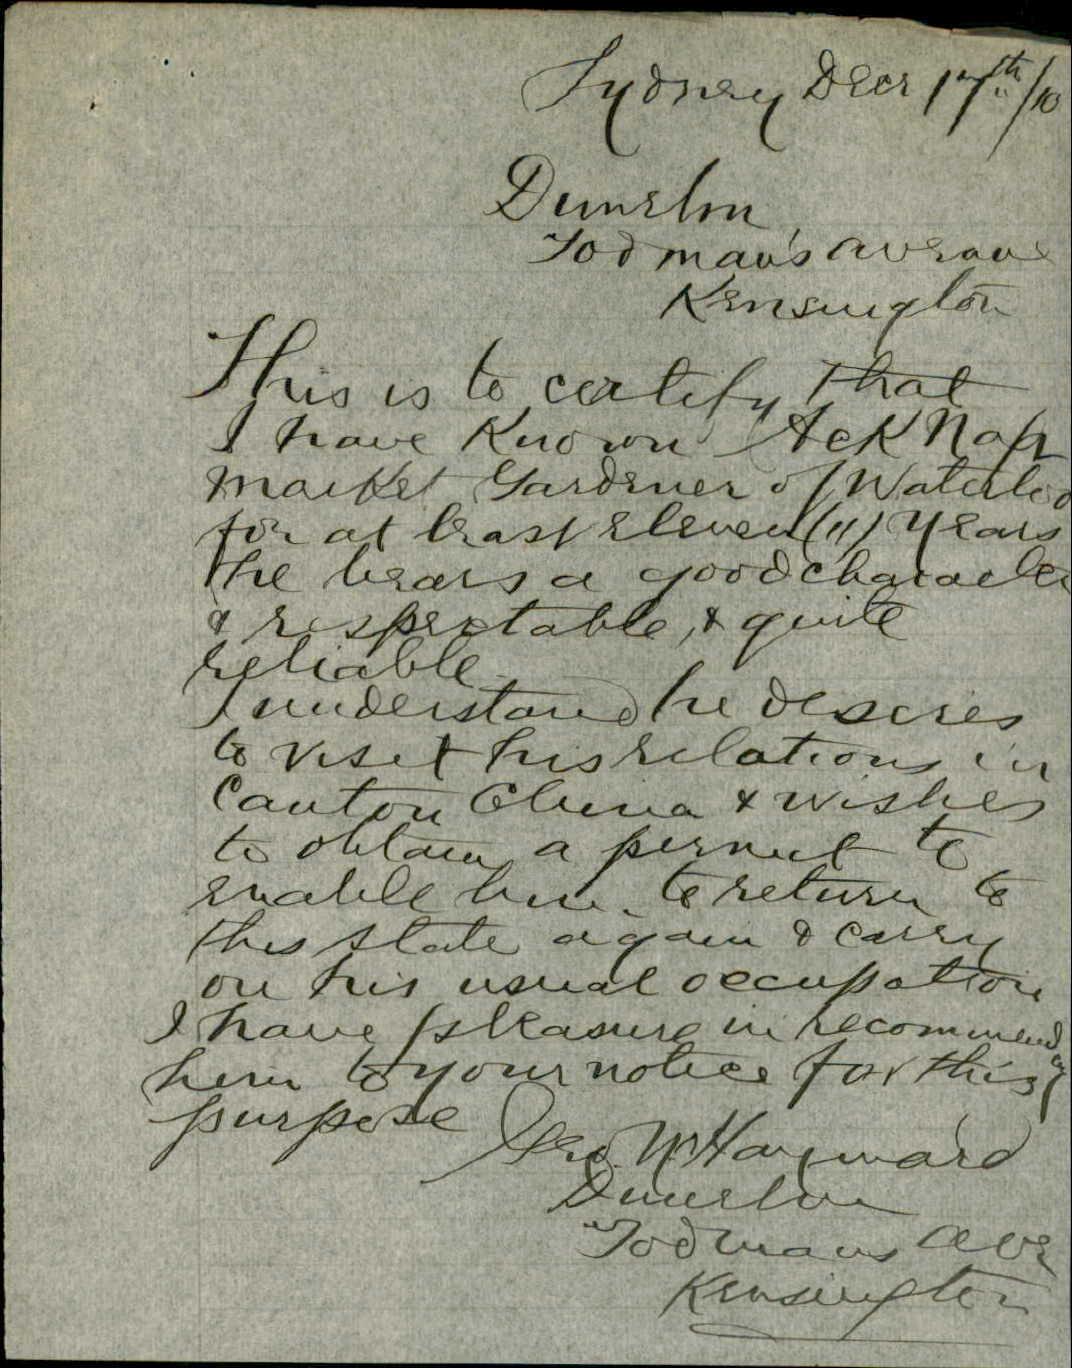 Sydney Decr 17th/10
Dunelm
Todman's avenue
Kensington
This is to certify that
I have known Ack Nap
market Gardener of Waterloo
for at least eleven (11) years
He bears a good character
& respectable, & quite
reliable
I understand he desires
to visit his relations in
Canton China & wishes
to obtain a permit to
enable him to return to
this state again & carry
on his usual occupation
I have pleasure in recommending
him to your notice for this
purpose
Geo. W. Hayward
Dunelm
Todmans Ave
Kensington